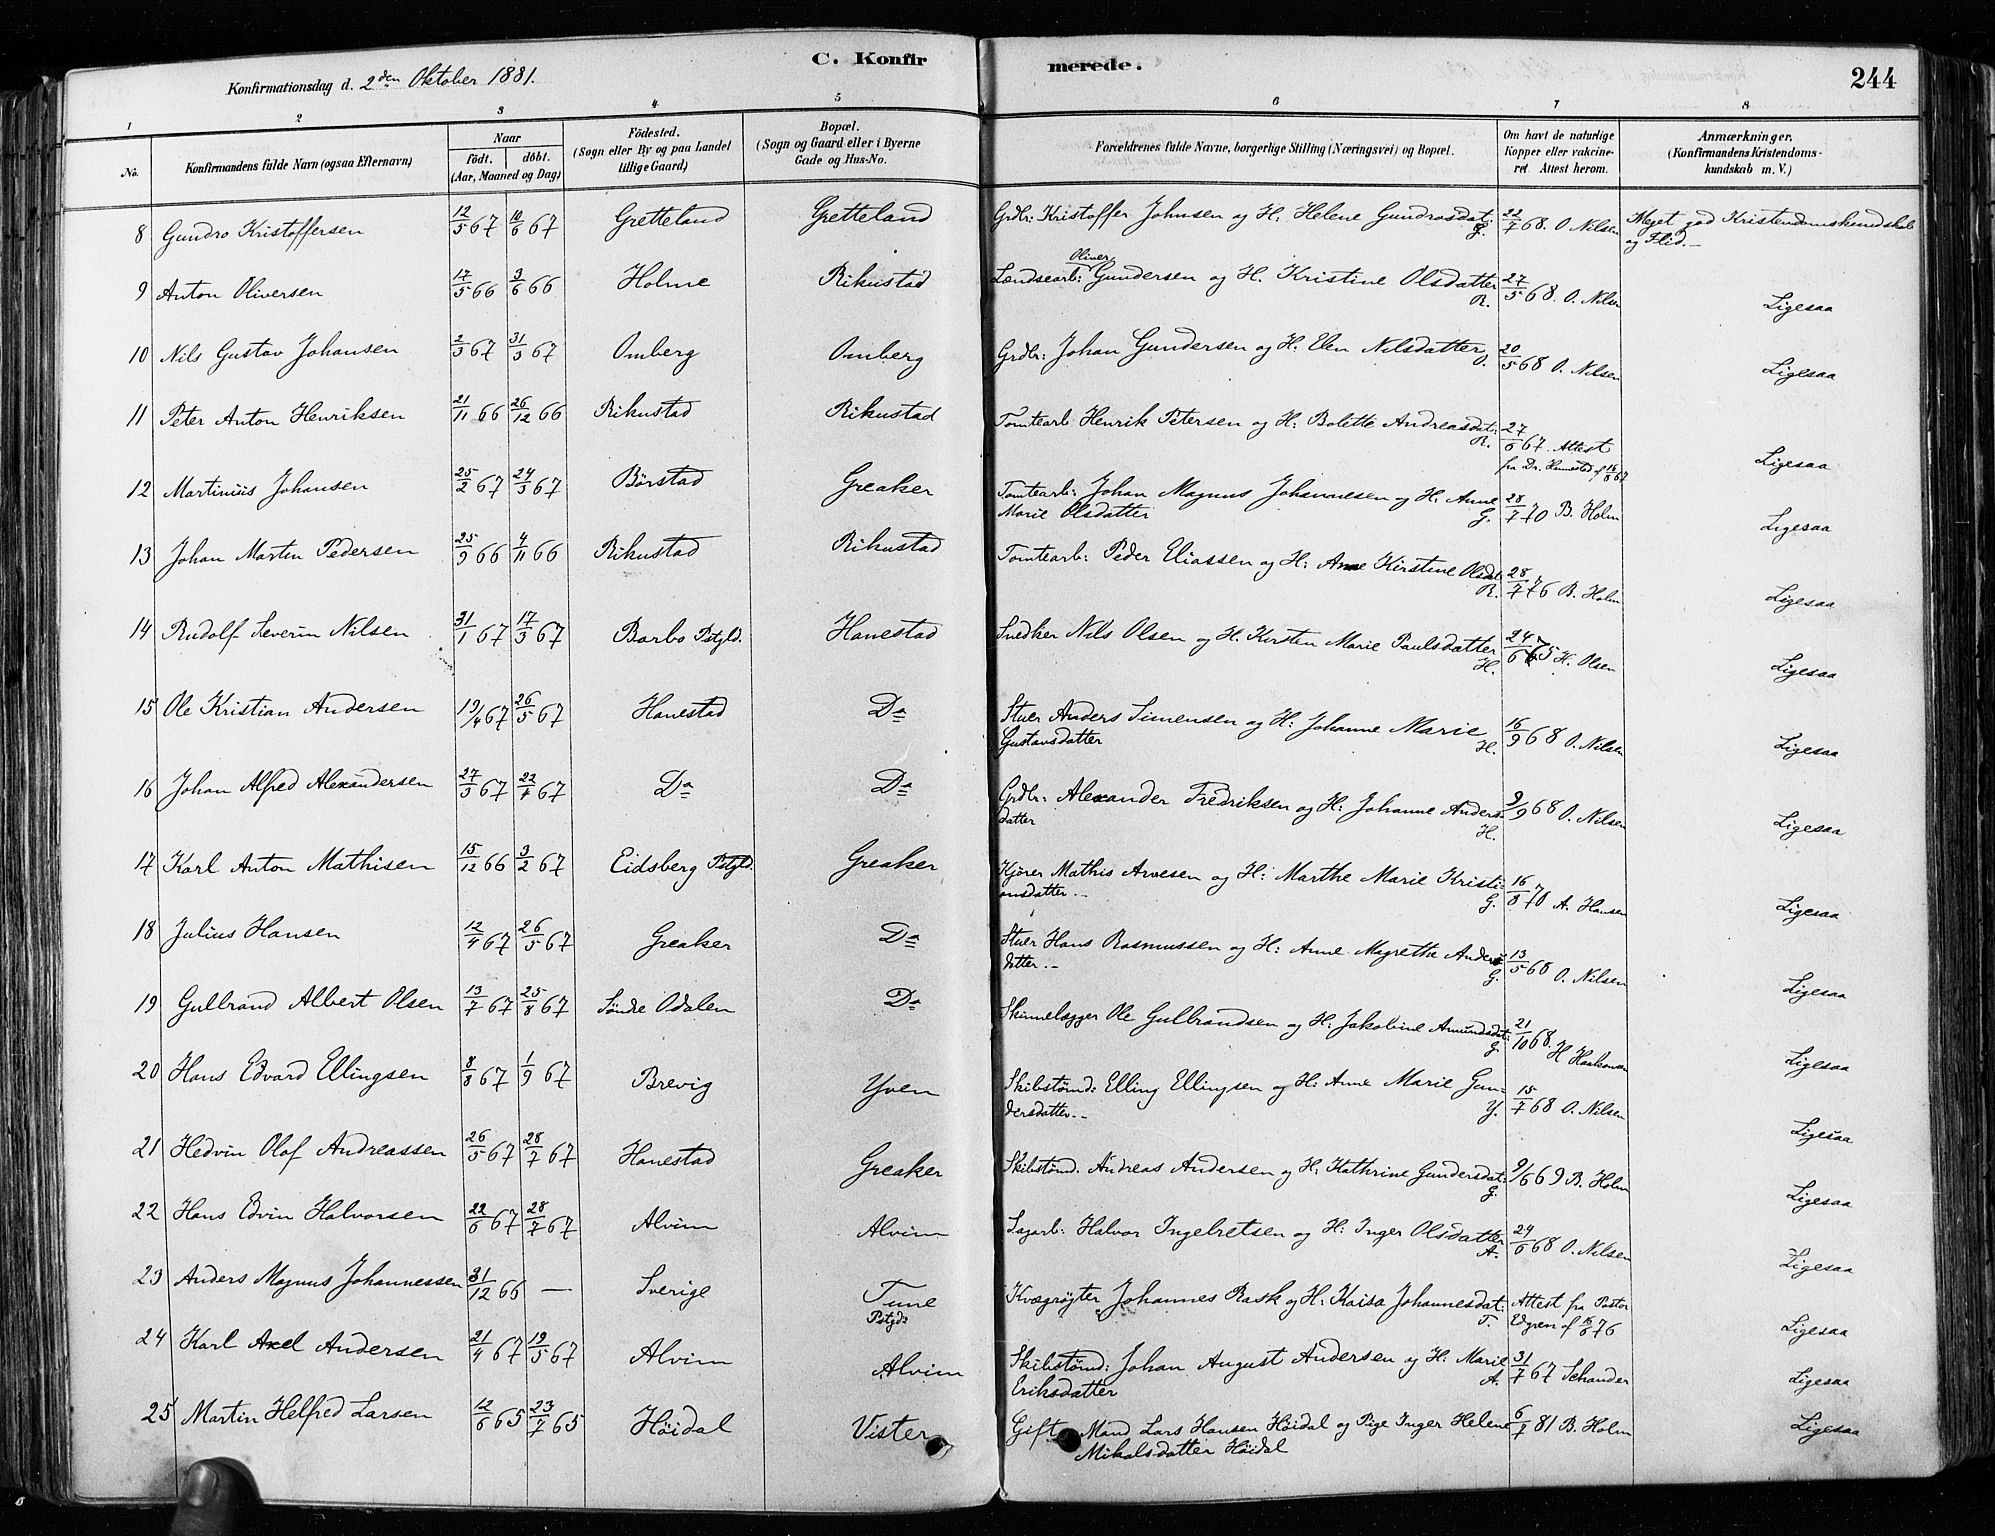 C. Konfirmerede.
244
Konfirmationsdag d. 2den Oktober 1881.
1 2 3 4 5 6 7 8
No. Konfirmandens fulde Navn (ogsaa Efternavn) Naar födt. döbt. (Aar, Maaned og Dag) Födested. (Sogn eller By og paa Landet tillige Gaard) Bopæl. (Sogn og Gaard eller i Byerne Gade og Hus-No. Forældrenes fulde Navne, borgerlige Stilling (Næringsvei) og Bopæl. Om havt de naturlige Kopper eller vakcineret. Attest herom. Anmærkninger, (Konfirmandens Kristendomskundskab m. V.)
8 Gundro Kristoffersen 12/5 67 10/6 67 Gretteland Gretteland Grdbr: Kristoffer Johnsen og H: Helene Gundrosdat: G. 22/7 68. O. Nilsen Meget god Kristendomskundskab og Flid.
9 Anton Oliversen 17/5 66 3/6 66 Holme Rikustad Lændsearb: Oliver Gundersen og H. Kristine Olsdatter R. 27/5 68. O. Nilsen Ligesaa
10 Nils Gustav Johansen 2/3 67 31/3 67 Omberg Omberg Grdbr: Johan Gundersen og H. Elen Nilsdatter O. 20/5 68 O. Nilsen Ligesaa
11 Peter Anton Henriksen 21/11 66 26/12 66 Rikustad Rikustad Tomtearb: Henrik Petersen og H: Bolette Andreasdat: R. 27/6 67. Attest fra Dr. Hannestad af 16/8 67 Ligesaa
12 Martinius Johansen 25/2 67 24/3 67 Børstad Greaker Tomtearb: Johan Magnus Johannesen og H. Anne Marie Olsdatter G. 28/7 70 B. Holm Ligesaa
13 Johan Martin Pedersen 25/9 66 4/11 66 Rikustad Rikustad Tomtearb: Peder Eliassen og H: Anne Kirstine Olsdat: R. 28/7 76 B. Holm Ligesaa
14 Rudolf Severin Nilsen 31/1 67 17/3 67 Barbo Pstgld. Hanestad Snedker Nils Olsen og H. Kirsten Marie Paulsdatter H. 24/6 75 H. Olsen Ligesaa
15 Ole Kristian Andersen 19/4 67 26/5 67 Hanestad Do Stuer Anders Simensen og H: Johanne Marie Gustavsdatter H. 16/9 68 O. Nilsen Ligesaa
16 Johan Alfred Alexandersen 27/3 67 22/4 67 Do Do Grdbr: Alexander Fredriksen og H: Johanne Andersdatter H. 9/9 68 O. Nilsen Ligesaa
17 Karl Anton Mathisen 15/12 66 3/2 67 Eidsberg Pstgld. Greaker Kjörer Mathis Arvesen og H: Marthe Marie Kristiansdatter.- G. 16/8 70 A. Hansen Ligesaa
18 Julius Hansen 12/4 67 26/5 67 Greaker Do Stuer Hans Rasmussen og H: Anne Magrethe Andersdatter.- G. 13/5 68 O. Nilsen Ligesaa
19 Gulbrand Albert Olsen 13/7 67 25/8 67 Söndre Odalen Do Skinnelægger Ole Gulbrandsen og H. Jakobine Amundsdat: G. 21/10 68. H Haakonsen Ligesaa
20 Hans Edvard Ellingsen 8/8 67 1/9 67 Brevig Yven Skibstømd: Elling Ellingsen og H: Anne Marie Gundersdatter.- Y. 15/7 68 O. Nilsen Ligesaa
21 Hedvin Olaf Andreassen 26/5 67 28/7 67 Hanestad Greaker Skibstømd. Andreas Andersen og H: Kathrine Gundersdat: G. 9/6 69 B. Holm Ligesaa
22 Hans Edvin Halvorsen 22/6 67 28/7 67 Alvim Alvim Sagarb: Halvor Ingebretsen og H: Inger Olsdatter A. 24/6 68 O. Nilsen Ligesaa
23 Anders Magnus Johannessen 31/12 66 — Sverige Tune Pstgld: Kvægrøgter Johannes Rask og H: Kaisa Johannesdat: T. Attest fra Pastor Edgren af 16/8 76 Ligesaa
24 Karl Axel Andersen 21/4 67 19/5 67 Alvim Alvim Skibstømd: Johan August Andersen og H: Marie Eriksdatter A. 31/7 67 Schander Ligesaa
25 Martin Helfred Larsen 12/6 65 23/7 65 Höidal Vister Gift Mand Lars Hansen Höidal og Pige Inger Helene Mikalsdatter Höidal 6/7 81 B. Holm Ligesaa